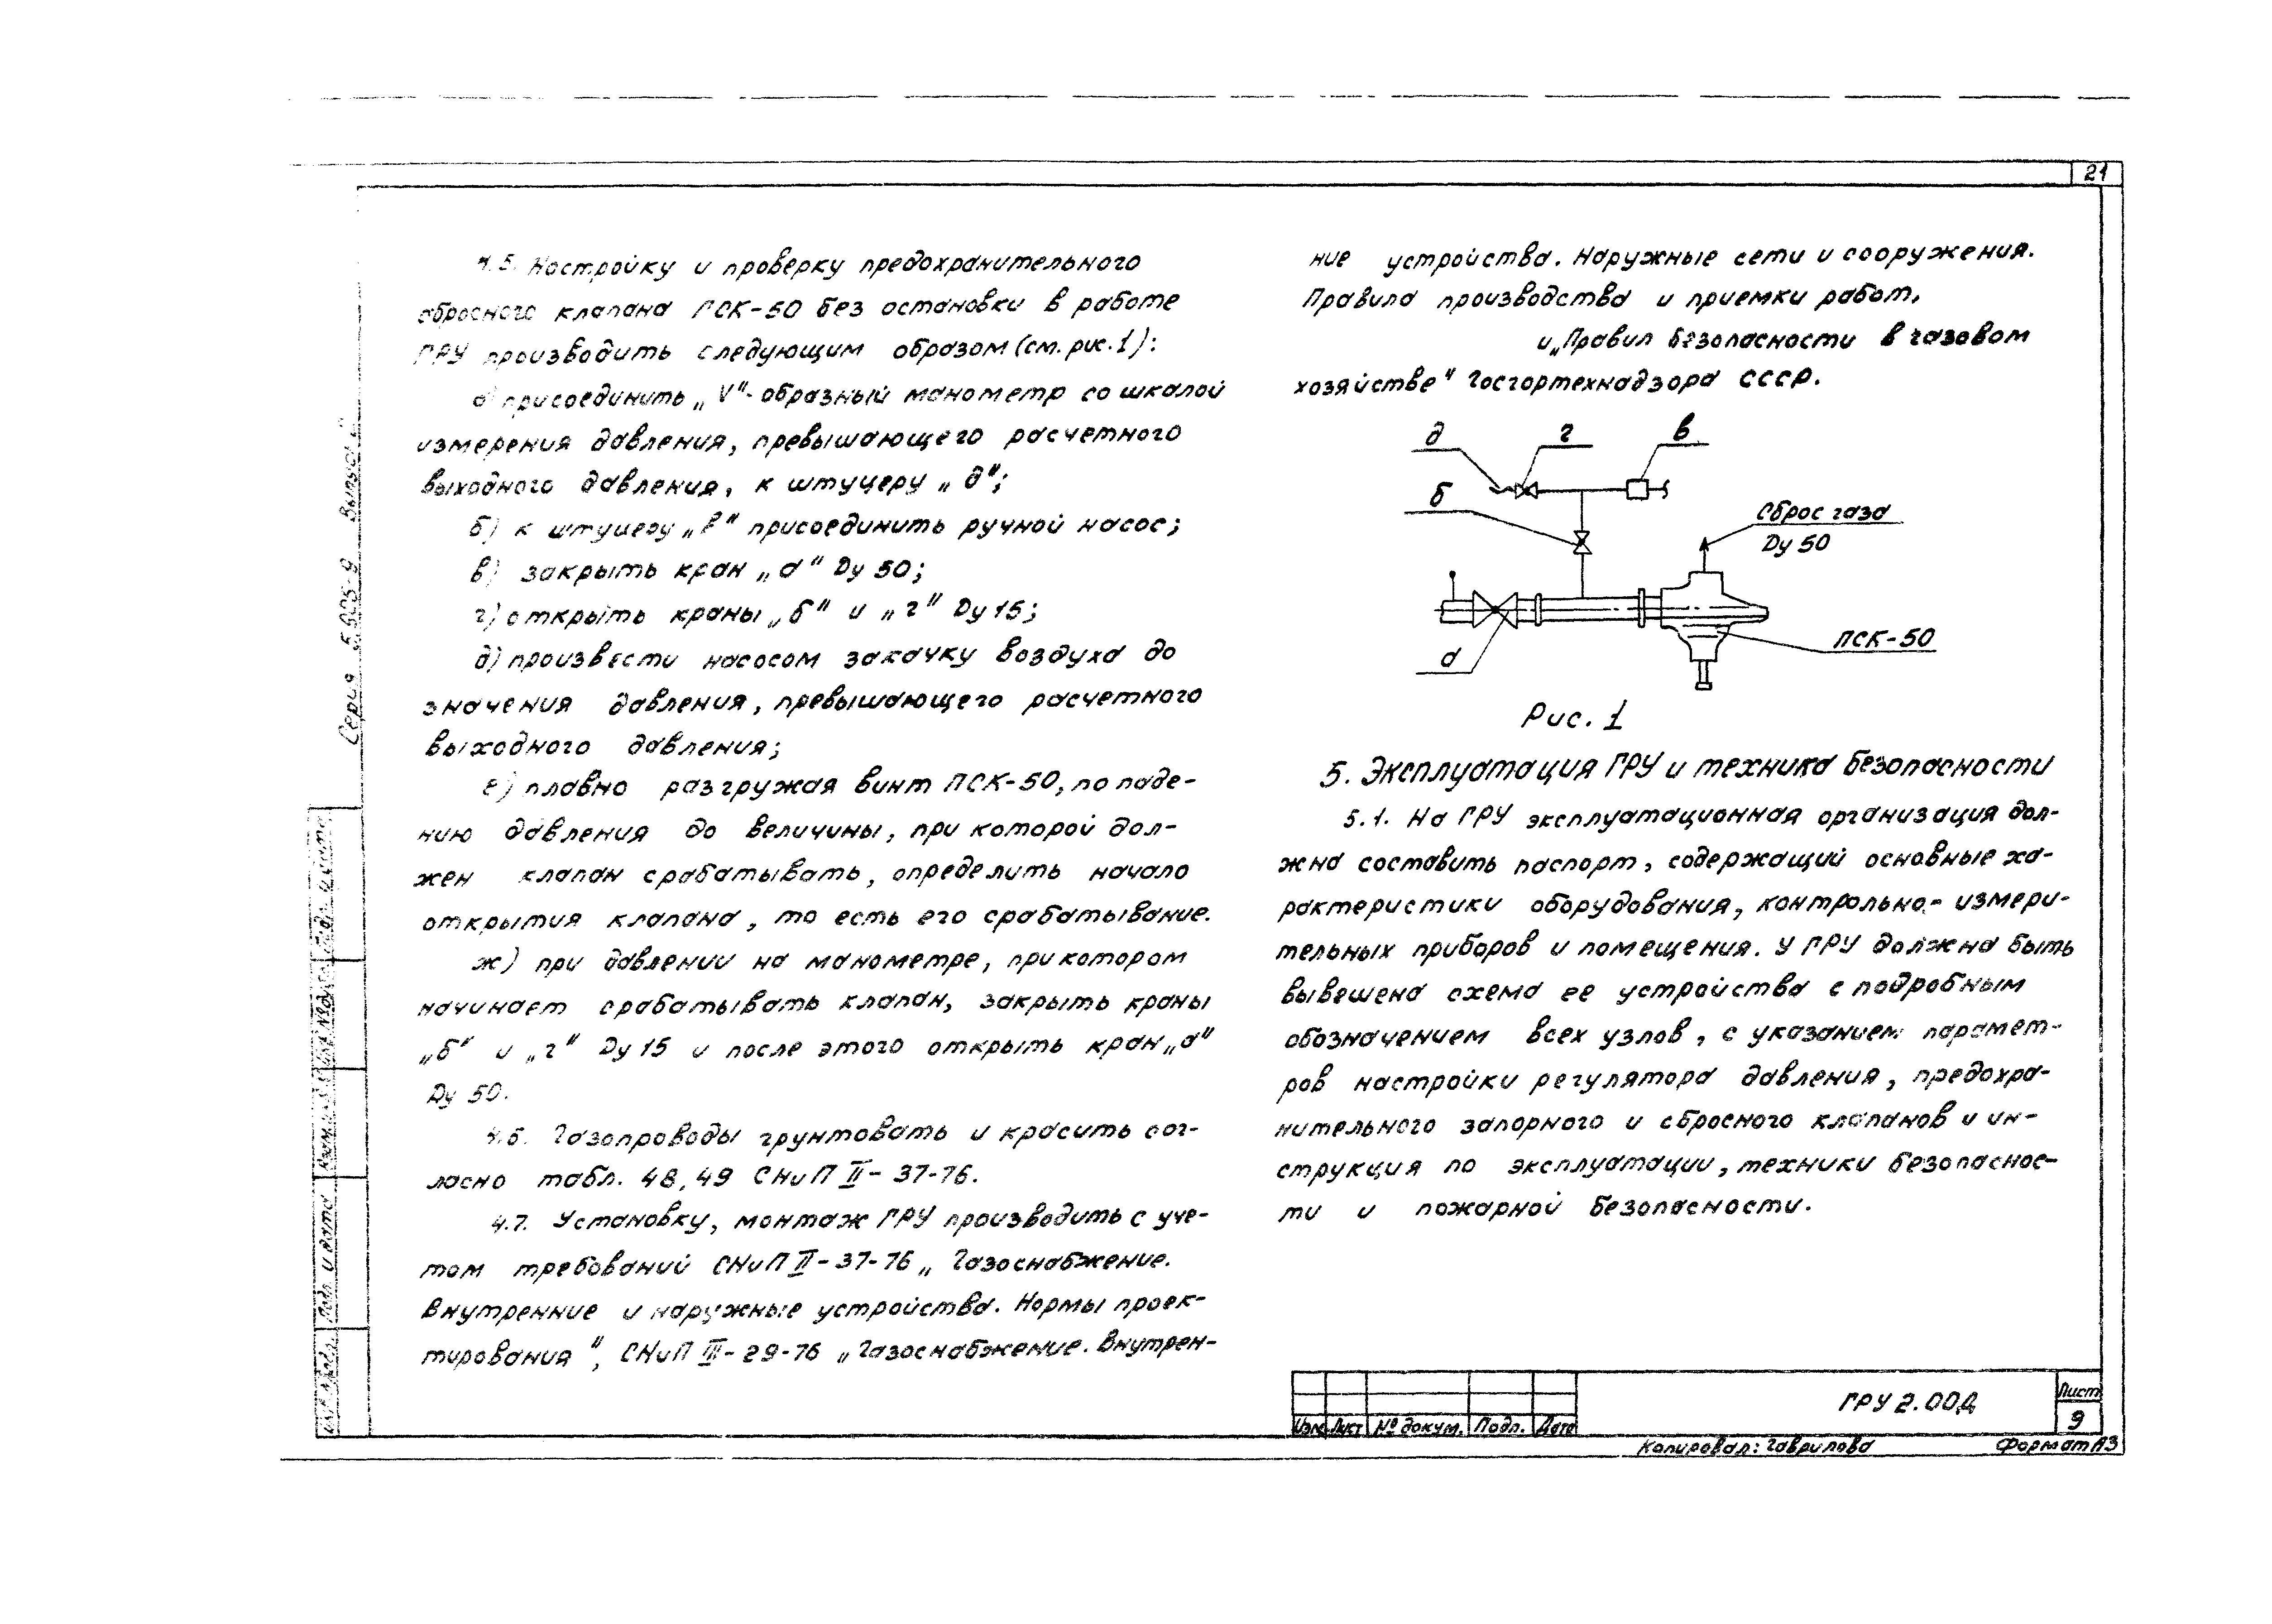 21
4.5. Настройку и проверку предохранительного
сбросного клапана ПСК-50 без остановки в работе
ГРУ производить следующим образом (см. рис. 1):
а) присоединить „V"-образный манометр со шкалой
измерения давления, превышающего расчетного
выходного давления, к штуцеру „д";
б) к штуцеру „в" присоединить ручной насос;
в) закрыть кран „а" Ду 50;
г) открыть краны „б" и „г" Ду 15;
д) произвести насосом закачку воздуха до
значения давления, превышающего расчетного
выходного давления;
е) плавно разгружая винт ПСК-50, по паде-
нию давления до величины, при которой дол-
жен клапан срабатывать, определить начало
открытия клапана, то есть его срабатывание.
ж) при давлении на манометре, при котором
начинает срабатывать клапан, закрыть краны
„б" и „г" Ду 15 и после этого открыть кран „а"
Ду 50.
4.6. Газопроводы грунтовать и красить сог-
ласно табл. 48, 49 СНиП II-37-76.
4.7. Установку, монтаж ГРУ производить с уче-
том требований СНиП II-37-76 „Газоснабжение.
Внутренние и наружные устройства. Нормы проек-
тирования", СНиП III-29-76 „Газоснабжение. Внутрен-
ние устройства. Наружные сети и сооружения.
Правила производства и приемки работ,
и „Правил безопасности в газовом
хозяйстве" Госгортехнадзора СССР.
д г в
б
Сброс газа
Ду 50
ПСК-50
а
Рис. 1
5. Эксплуатация ГРУ и техника безопасности
5.1. На ГРУ эксплуатационная организация дол-
жна составить паспорт, содержащий основные ха-
рактеристики оборудования, контрольно-измери-
тельных приборов и помещения. У ГРУ должна быть
вывешена схема ее устройства с подробным
обозначением всех узлов, с указанием парамет-
ров настройки регулятора давления, предохра-
нительного запорного и сбросного клапанов и ин-
струкция по эксплуатации, техники безопаснос-
ти и пожарной безопасности.
Серия 5.905-9 Выпуск
Подп. и дата
Взам.
Подп. и дата
Изм. Лист № докум. Подп. Дата
ГРУ 2.00Д
Лист
9
Копировал: Гаврилова
Формат А3